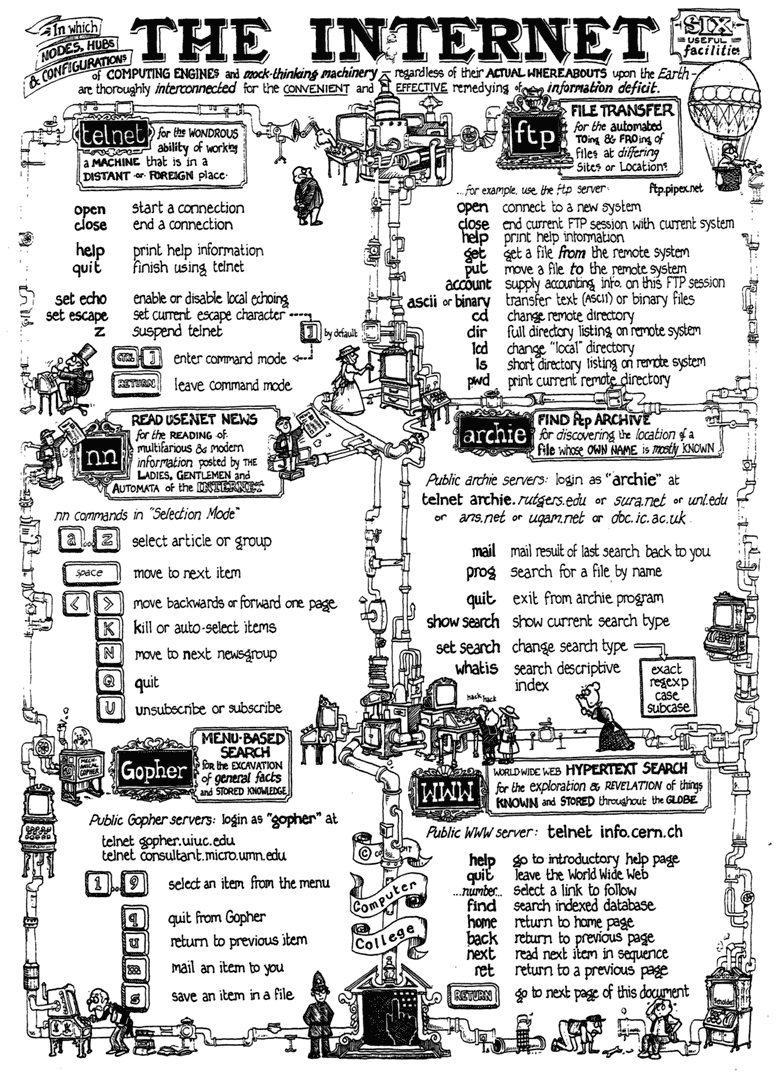 In which
NODES, HUBS
& CONFIGURATIONS
THE INTERNET
SIX
USEFUL
facilities
of COMPUTING ENGINES and mock-thinking machinery regardless of their ACTUAL WHEREABOUTS upon the Earth -
are thoroughly interconnected for the CONVENIENT and EFFECTIVE remedying of information deficit.
telnet
for the WONDROUS
ability of working
a MACHINE that is in a
DISTANT or FOREIGN place.
open start a connection
close end a connection
help print help information
quit finish using telnet
set echo enable or disable local echoing
set escape set current escape character
] by default
z suspend telnet
CTRL ] enter command mode
RETURN leave command mode
ftp
FILE TRANSFER
for the automated
TOing & FROing of
files at differing
Sites or Locations.
...for example, use the ftp server: ftp.pipex.net
open connect to a new system
close end current FTP session with current system
help print help information
get get a file from the remote system
put move a file to the remote system
account supply accounting info. on this FTP session
ascii or binary transfer text (ASCII) or binary files
cd change remote directory
dir full directory listing on remote system
lcd change "local" directory
ls short directory listing on remote system
pwd print current remote directory
nn
READ USENET NEWS
for the READING of
multifarious & modern
information posted by THE
LADIES, GENTLEMEN and
AUTOMATA of the INTERNET
nn commands in "Selection Mode"
a .. z select article or group
space move to next item
< > move backwards or forward one page
K kill or auto-select items
N move to next newsgroup
Q quit
U unsubscribe or subscribe
archie
FIND ftp ARCHIVE
for discovering the location of a
file whose OWN NAME is mostly KNOWN
Public archie servers: login as "archie" at
telnet archie.rutgers.edu or sura.net or unl.edu
or ans.net or uqam.net or doc.ic.ac.uk
mail mail result of last search back to you
prog search for a file by name
quit exit from archie program
show search show current search type
set search change search type
whatis search descriptive
index
exact
regexp
case
subcase
hack hack
Gopher
MENU-BASED
SEARCH
for the EXCAVATION
of general facts
and STORED KNOWLEDGE
GOPHER
Public Gopher servers: login as "gopher" at
telnet gopher.uiuc.edu
telnet consultant.micro.umn.edu
1 .. 9 select an item from the menu
q quit from Gopher
u return to previous item
m mail an item to you
s save an item in a file
WWW
WORLD WIDE WEB HYPERTEXT SEARCH
for the exploration & REVELATION of things
KNOWN and STORED throughout the GLOBE.
Public WWW server: telnet info.cern.ch
help go to introductory help page
quit leave the World Wide Web
...number... select a link to follow
find search indexed database
home return to home page
back return to previous page
next read next item in sequence
ret return to a previous page
RETURN go to next page of this document
©
Computer
College